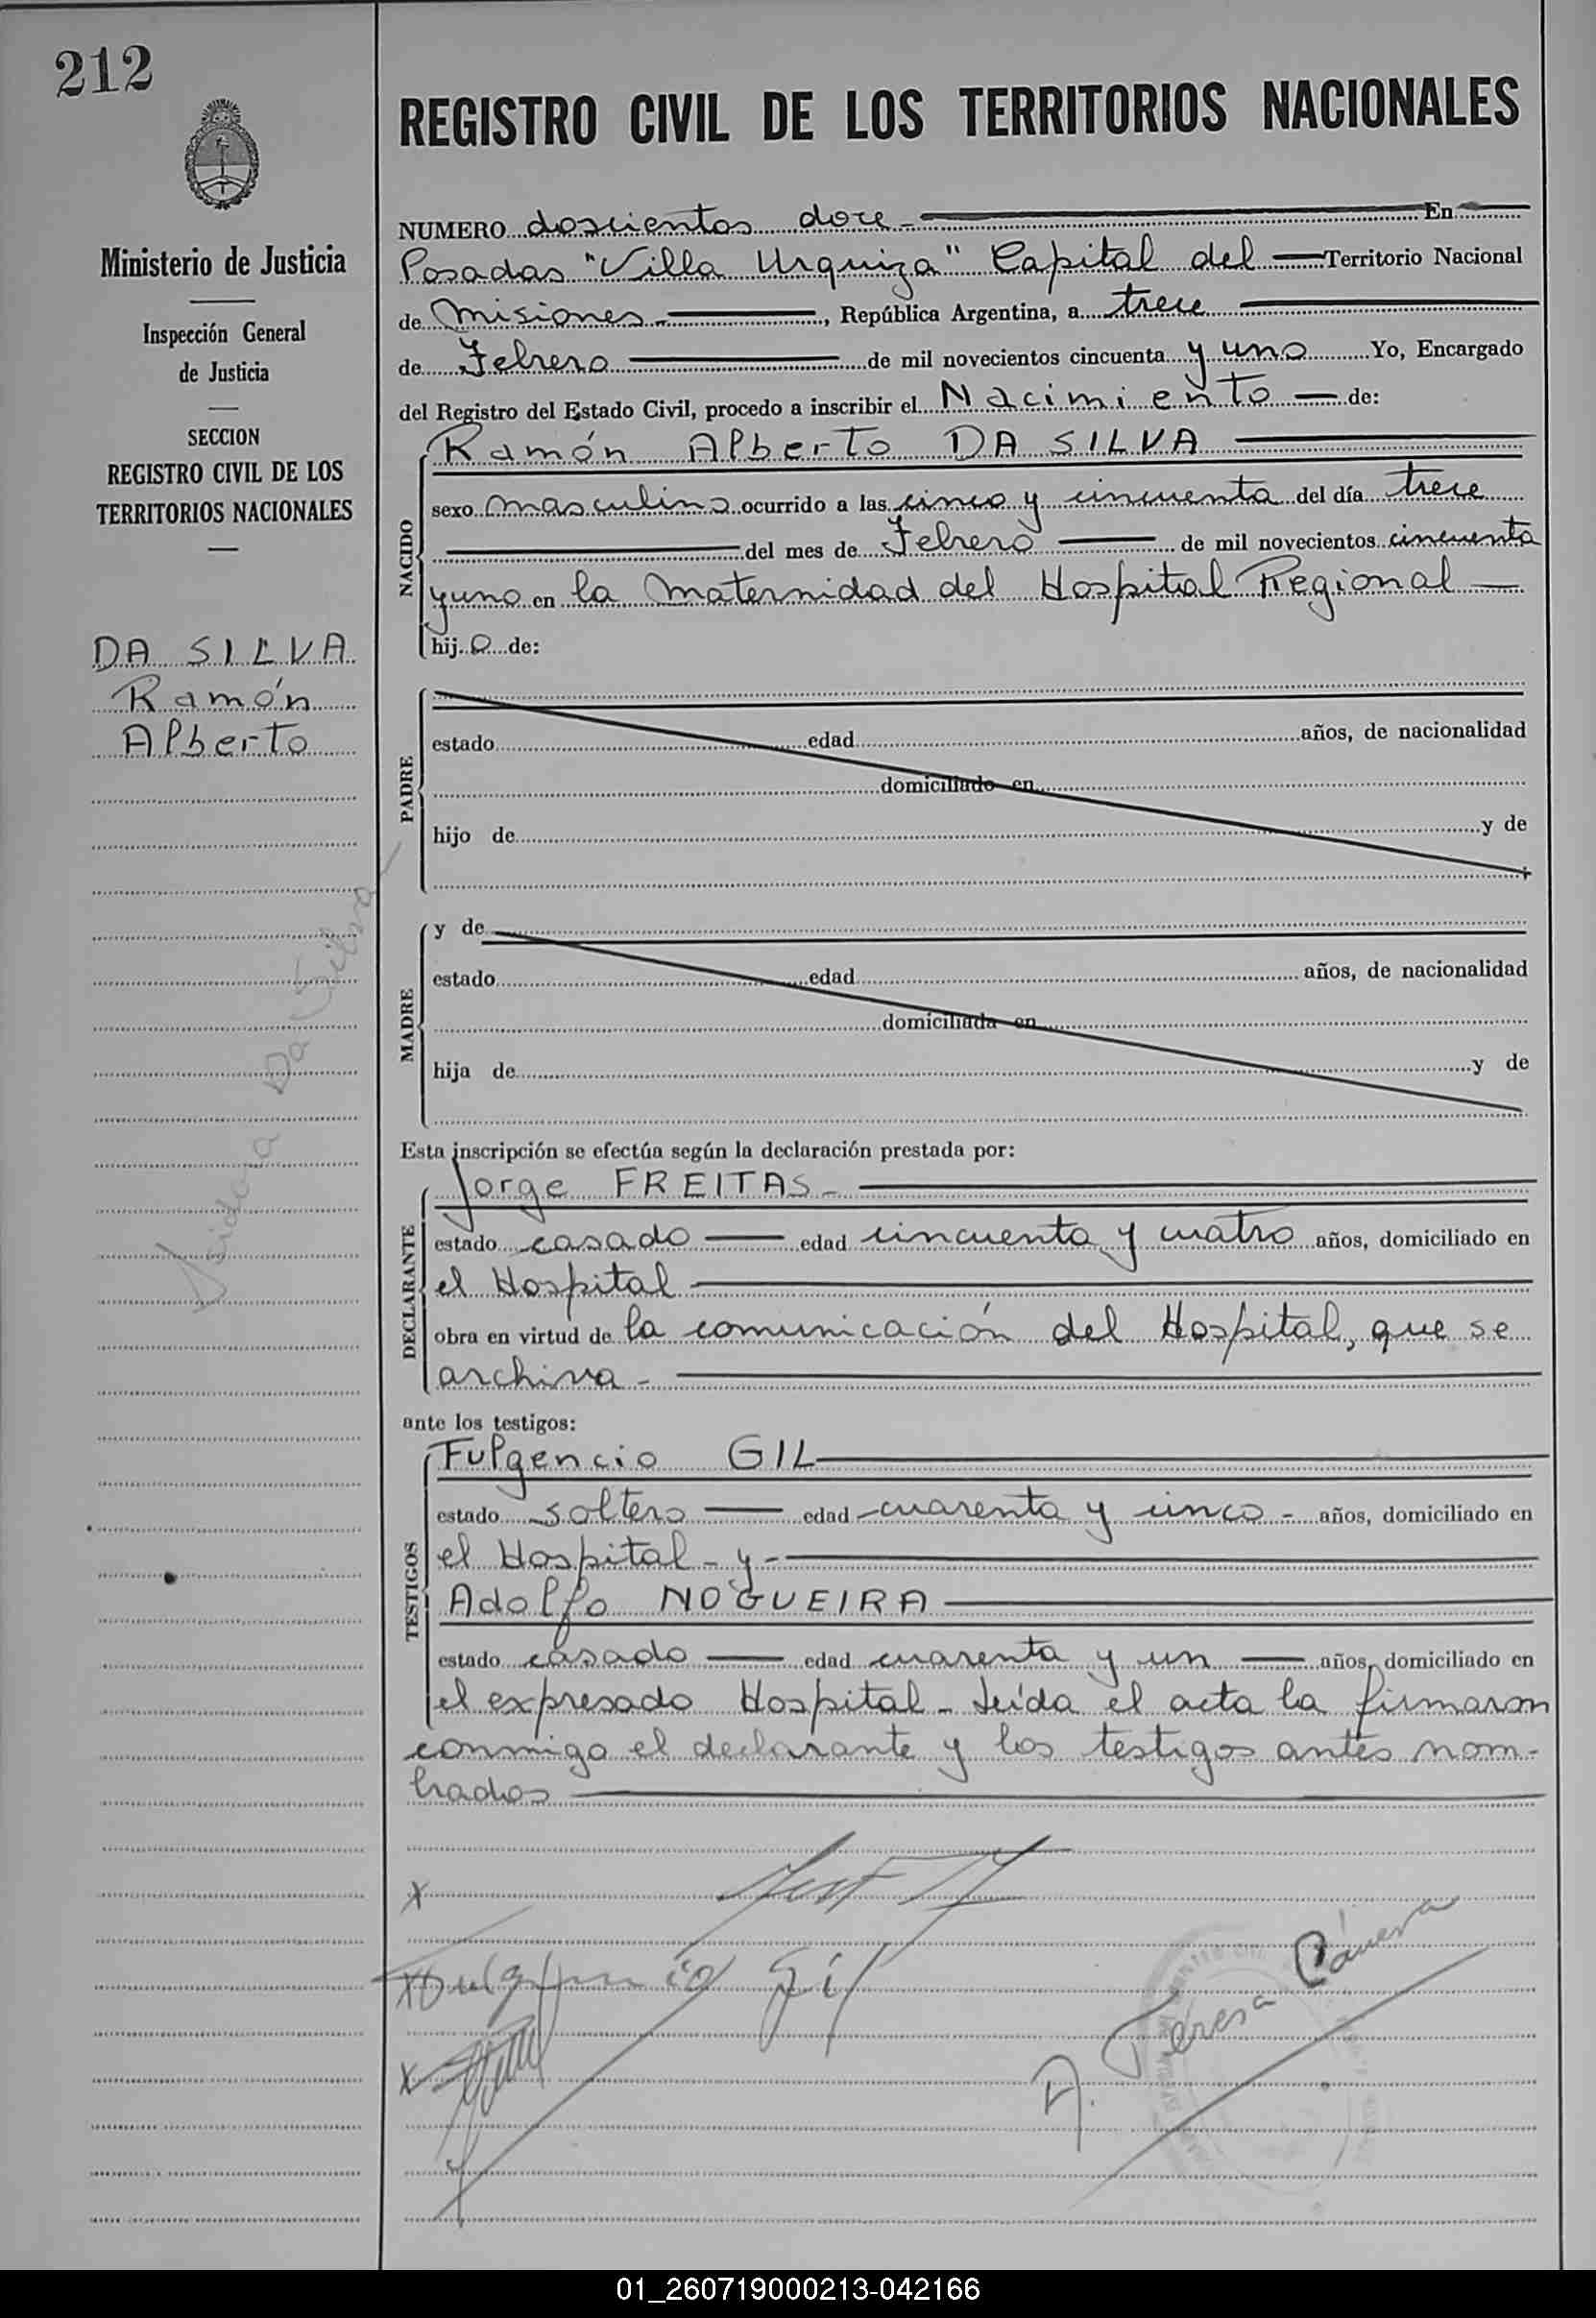 212
Ministerio de Justicia
Inspección General
de Justicia
SECCION
REGISTRO CIVIL DE LOS
TERRITORIOS NACIONALES
DA SILVA
Ramón
Alberto
Da Silva
REGISTRO CIVIL DE LOS TERRITORIOS NACIONALES
NUMERO doscientos doce - En
Posadas "Villa Urquiza" Capital del Territorio Nacional
de Misiones -, República Argentina, a trece
de Febrero de mil novecientos cincuenta y uno Yo, Encargado
del Registro del Estado Civil, procedo a inscribir el Nacimiento de:
NACIDO
Ramón Alberto DA SILVA
sexo masculino ocurrido a las cinco y cincuenta del día trece
del mes de Febrero de mil novecientos cincuenta
y uno en la Maternidad del Hospital Regional
hijo de:
PADRE
estado edad años, de nacionalidad
domiciliado en
hijo de y de
MADRE
y de
estado edad años, de nacionalidad
domiciliada en
hija de y de
Esta inscripción se efectúa según la declaración prestada por:
DECLARANTE
Jorge FREITAS -
estado casado edad cincuenta y cuatro años, domiciliado en
el Hospital
obra en virtud de la comunicación del Hospital, que se
archiva -
ante los testigos:
TESTIGOS
Fulgencio GIL
estado soltero edad cuarenta y cinco - años, domiciliado en
el Hospital - y -
Adolfo NOGUEIRA
estado casado edad cuarenta y un años, domiciliado en
el expresado Hospital - Leída el acta la firmaron
conmigo el declarante y los testigos antes nom-
brados
x
x Fulgencio Gil
x
A. Teresa
01_260719000213-042166